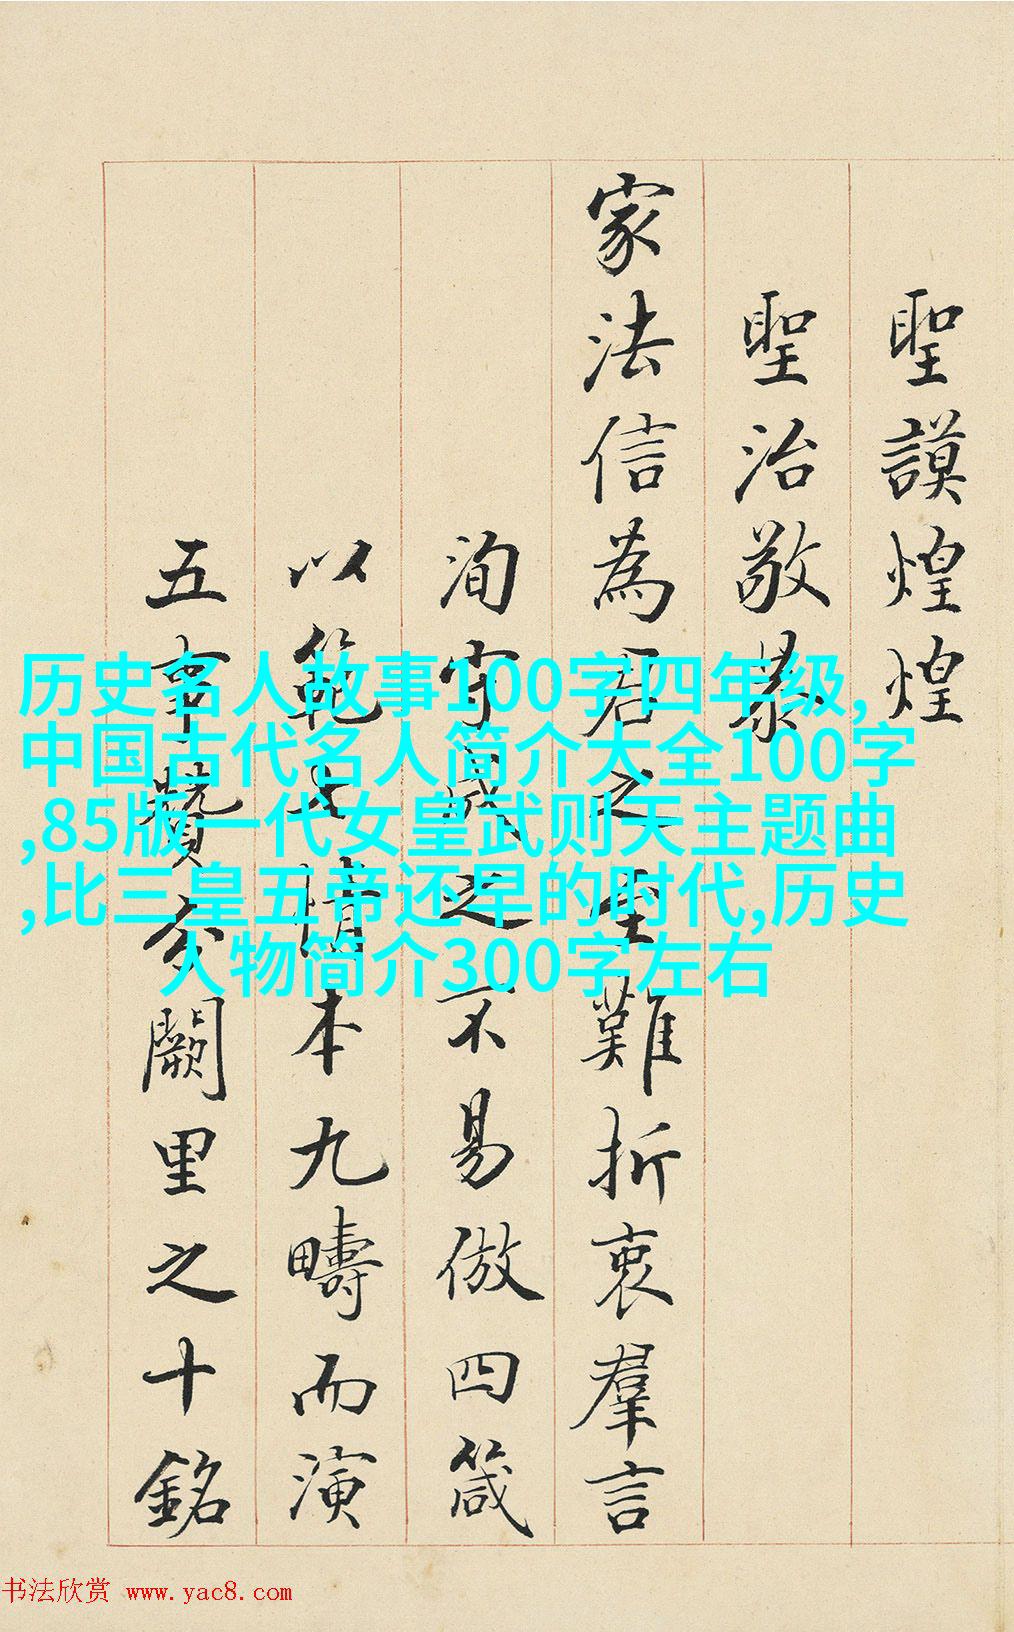 聖謨煌煌
聖治敬
家法信為君之至難折衷羣言
洵守成之不易倣四箴
以範七情本九疇而演
五事贊闕里之十銘
历史名人故事100字四年级,
中国古代名人简介大全100字
,85版一代女皇武则天主题曲
,比三皇五帝还早的时代,历史
人物简介300字左右
书法欣赏 www.yac8.com